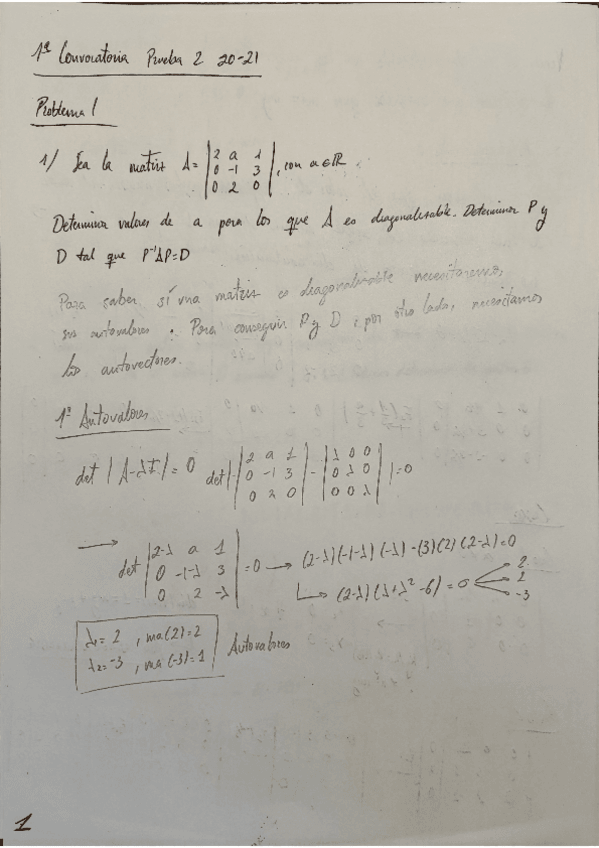 1ª Convocatoria Prueba 2 20-21
Problema 1
1/ Sea la matriz A= |2 a 1| , con a∈ℝ
|0 -1 3|
|0 2 0|
Determinar valores de a para los que A es diagonalizable. Determinar P y
D tal que P⁻¹AP=D
Para saber si una matriz es diagonalizable necesitaremos
sus autovalores. Para conseguir P y D, por otro lado, necesitamos
los autovectores.
1º Autovalores
det |A-λI|=0 det | |2 a 1| - |λ 0 0| |=0
|0 -1 3| |0 λ 0|
|0 2 0| |0 0 λ|
→ det |2-λ a 1| =0 → (2-λ)(-1-λ)(-λ)-(3)(2)(2-λ)=0
|0 -1-λ 3|
|0 2 -λ|
↳ (2-λ)(λ+λ²-6)=0 2
2
-3
λ₁=2 , ma(2)=2
λ₂=-3 , ma(-3)=1
Autovalores
1